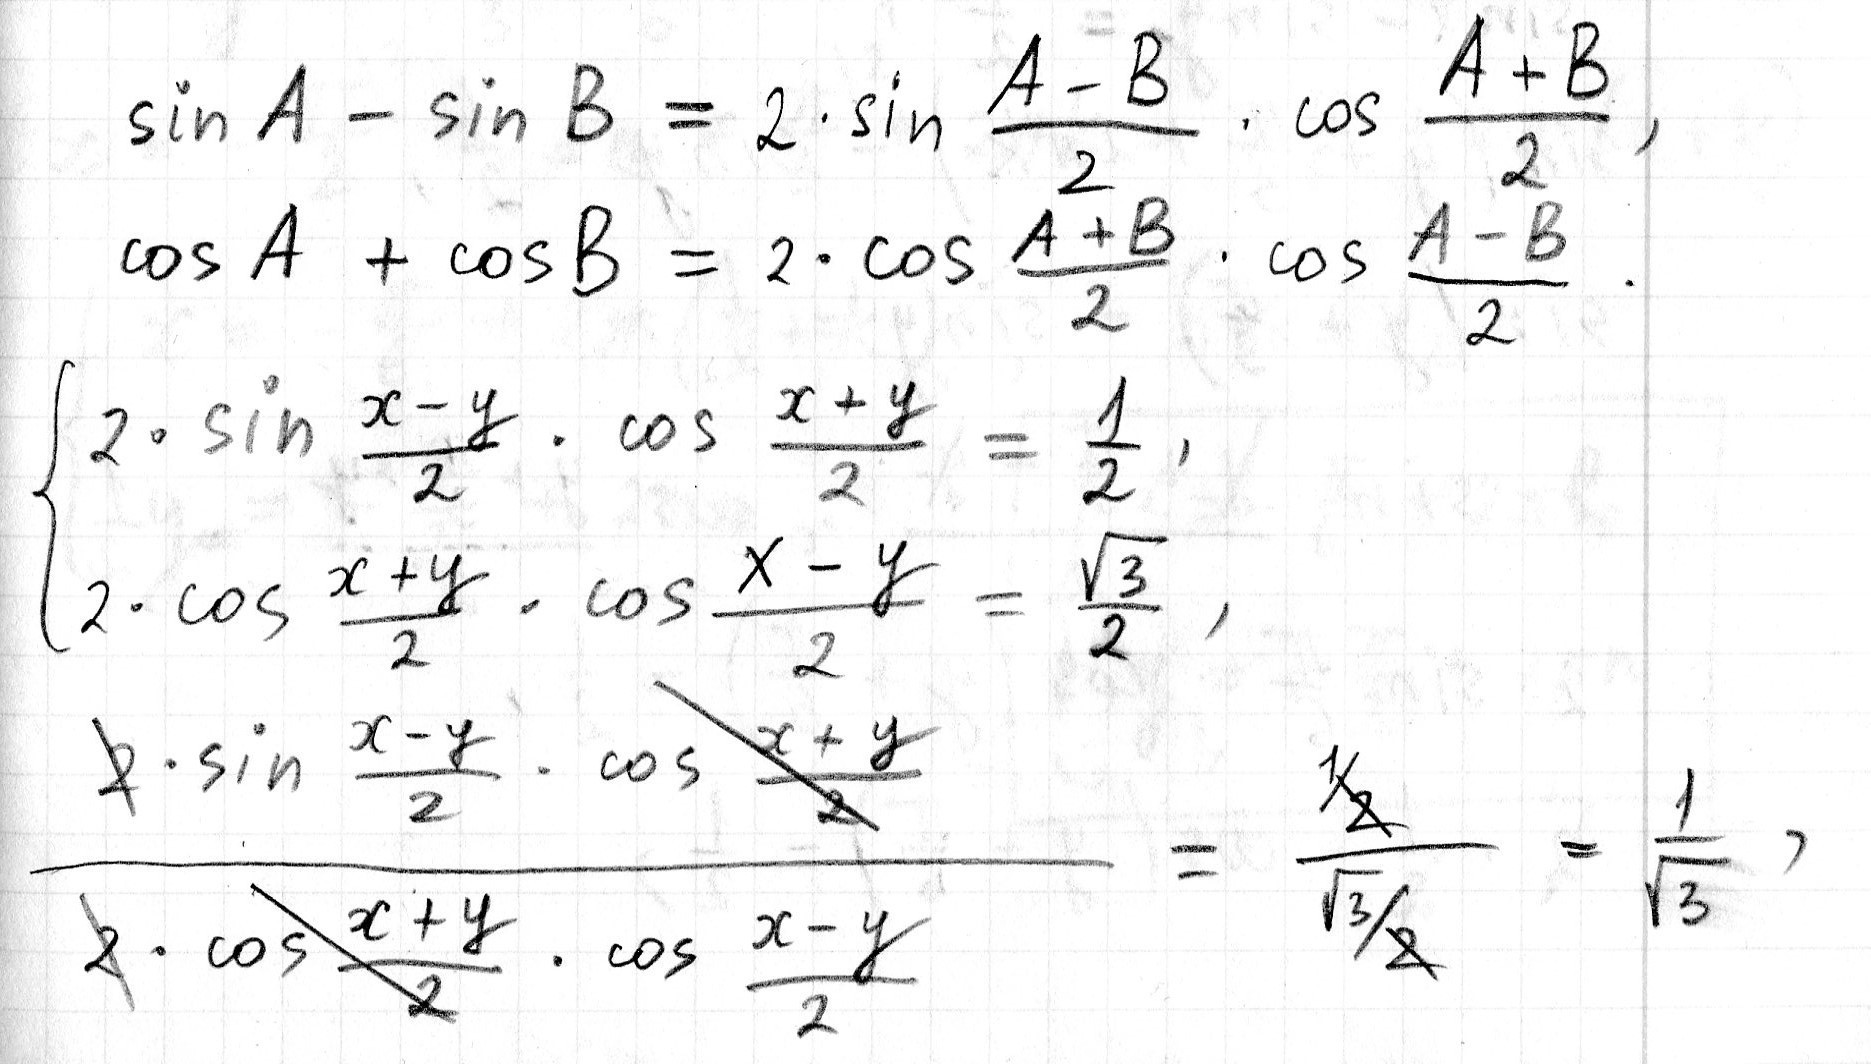 sin A − sin B = 2 · sin (A − B)/2 · cos (A + B)/2 ,
cos A + cos B = 2 · cos (A + B)/2 · cos (A − B)/2 .
{ 2 · sin (x − y)/2 · cos (x + y)/2 = 1/2 ,
2 · cos (x + y)/2 · cos (x − y)/2 = √3/2 ,
(2 · sin (x − y)/2 · cos (x + y)/2) / (2 · cos (x + y)/2 · cos (x − y)/2) = (1/2) / (√3/2) = 1/√3 ,